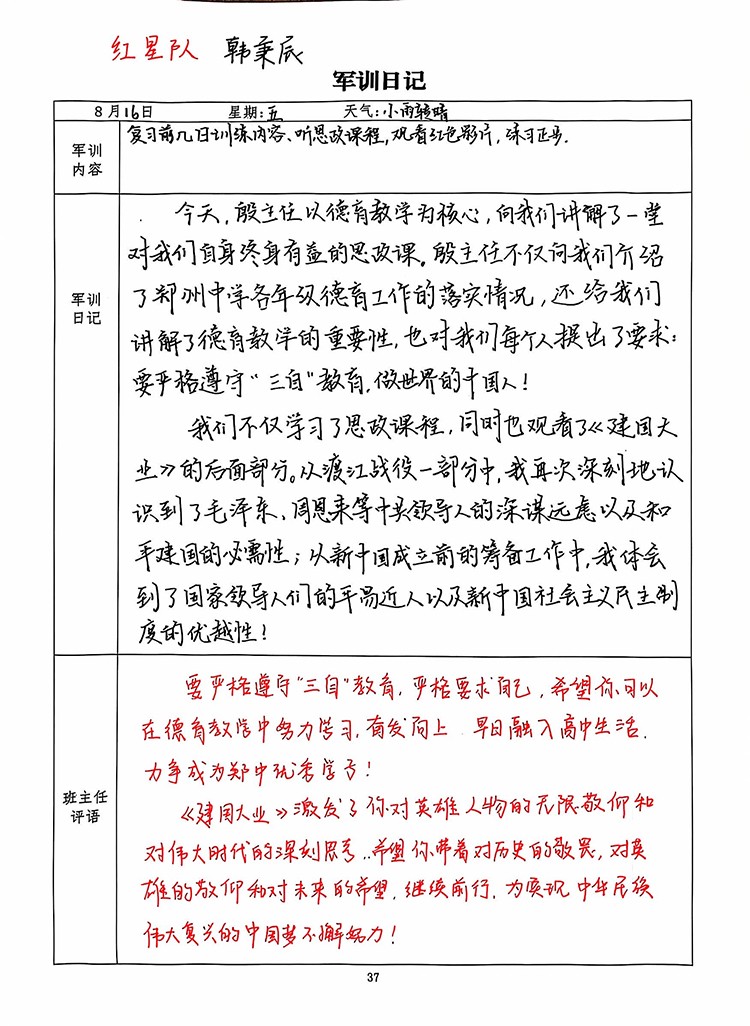 红星队 韩秉辰
军训日记
8月16日 星期:五 天气:小雨转晴
军训
内容
复习前几日训练内容、听思政课程,观看红色影片,练习正步.
军训
日记
今天,殷主任以德育教学为核心,向我们讲解了一堂
对我们自身终身有益的思政课。殷主任不仅向我们介绍
了郑州中学各年级德育工作的落实情况,还给我们
讲解了德育教学的重要性,也对我们每个人提出了要求:
要严格遵守“三自”教育,做世界的中国人!
我们不仅学习了思政课程,同时也观看了《建国大
业》的后面部分。从渡江战役一部分中,我再次深刻地认
识到了毛泽东、周恩来等中共领导人的深谋远虑以及和
平建国的必需性;从新中国成立前的筹备工作中,我体会
到了国家领导人们的平易近人以及新中国社会主义民主制
度的优越性!
班主任
评语
要严格遵守“三自”教育,严格要求自己,希望你可以
在德育教学中努力学习,奋发向上,早日融入高中生活.
力争成为郑中优秀学子!
《建国大业》激发了你对英雄人物的无限敬仰和
对伟大时代的深刻思考..希望你带着对历史的敬畏,对英
雄的敬仰和对未来的希望,继续前行,为实现中华民族
伟大复兴的中国梦不懈努力!
37